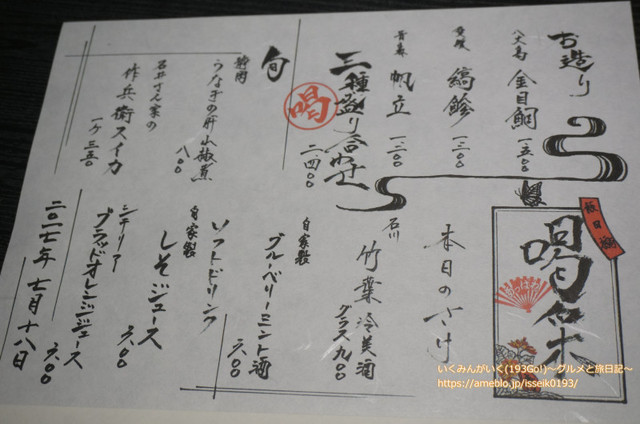 お造り
八丈島 金目鯛 一.五〇〇
愛媛 縞鯵 一.三〇〇
青森 帆立 一.二〇〇
三種盛り合わせ 二.四〇〇
喝
旬
静岡 うなぎの肝山椒煮 八〇〇
石井さん家の
作兵衛スイカ 一ケ 三五〇
喝采
本日のさけ
石川 竹葉 冷美酒 グラス 九〇〇
自家製 ブルーベリーミント酒 六〇〇
ソフトドリンク
自家製 しそジュース 六〇〇
シチリアー ブラッドオレンジジュース 六〇〇
二〇一七年 七月十八日
いくみんがいく(193Go!)～グルメと旅日記～
https://ameblo.jp/isseik0193/